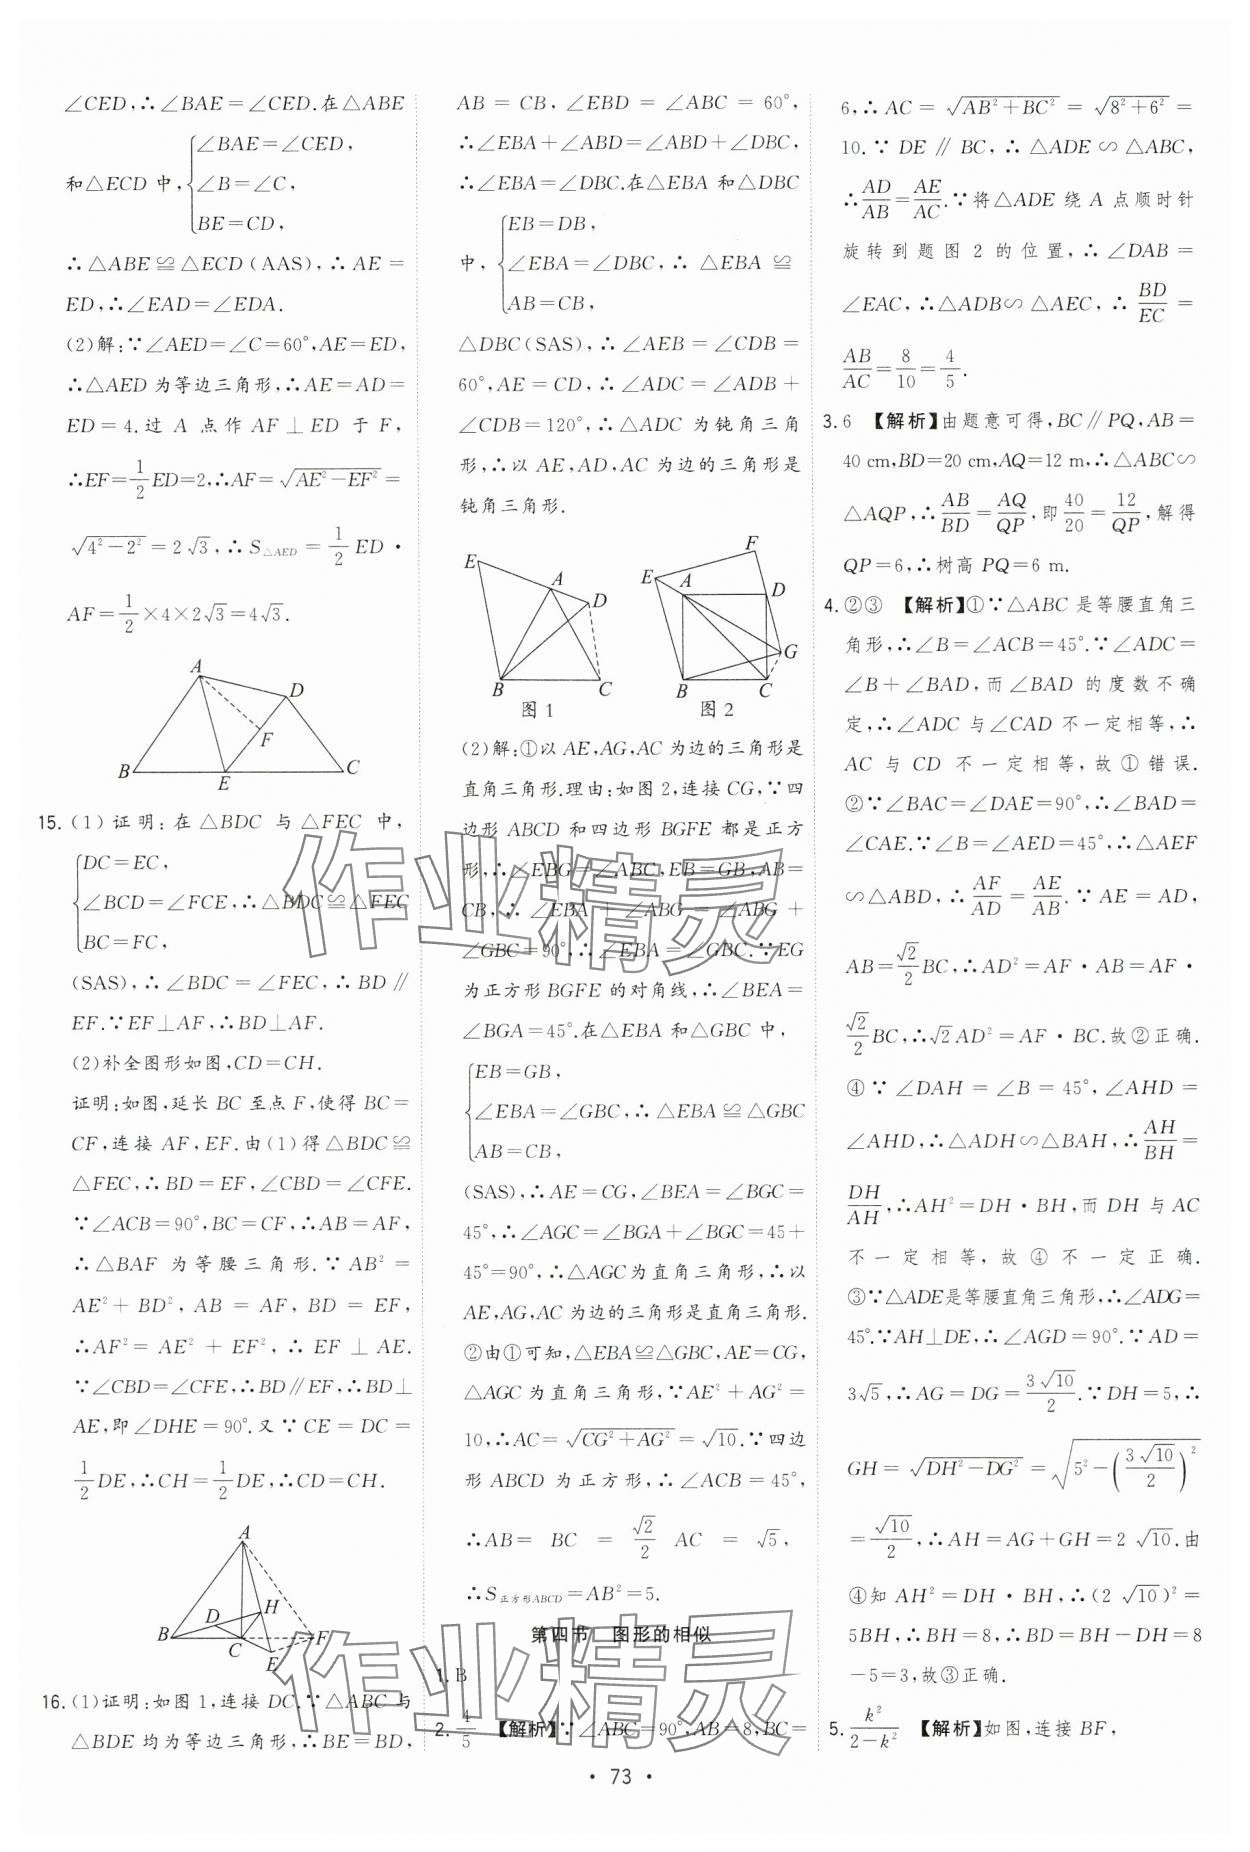 ∠CED,∴∠BAE=∠CED.在△ABE
和△ECD中,{∠BAE=∠CED,
∠B=∠C,
BE=CD,
∴△ABE≌△ECD(AAS),∴AE=
ED,∴∠EAD=∠EDA.
(2)解:∵∠AED=∠C=60°,AE=ED,
∴△AED为等边三角形,∴AE=AD=
ED=4.过A点作AF⊥ED于F,
∴EF=1/2ED=2,∴AF=√(AE²-EF²)=
√(4²-2²)=2√3,∴S△AED=1/2ED·
AF=1/2×4×2√3=4√3.
A
D
F
B
E
C
15.(1)证明:在△BDC与△FEC中,
{DC=EC,
∠BCD=∠FCE,∴△BDC≌△FEC
BC=FC,
(SAS),∴∠BDC=∠FEC,∴BD∥
EF.∵EF⊥AF,∴BD⊥AF.
(2)补全图形如图,CD=CH.
证明:如图,延长BC至点F,使得BC=
CF,连接AF,EF.由(1)得△BDC≌
△FEC,∴BD=EF,∠CBD=∠CFE.
∵∠ACB=90°,BC=CF,∴AB=AF,
∴△BAF为等腰三角形.∵AB²=
AE²+BD²,AB=AF,BD=EF,
∴AF²=AE²+EF²,∴EF⊥AE.
∵∠CBD=∠CFE,∴BD∥EF,∴BD⊥
AE,即∠DHE=90°.又∵CE=DC=
1/2DE,∴CH=1/2DE,∴CD=CH.
A
D
H
B
C
F
E
16.(1)证明:如图1,连接DC.∵△ABC与
△BDE均为等边三角形,∴BE=BD,
AB=CB,∠EBD=∠ABC=60°,
∴∠EBA+∠ABD=∠ABD+∠DBC,
∴∠EBA=∠DBC.在△EBA和△DBC
中,{EB=DB,
∠EBA=∠DBC,∴△EBA≌
AB=CB,
△DBC(SAS),∴∠AEB=∠CDB=
60°,AE=CD,∴∠ADC=∠ADB+
∠CDB=120°,∴△ADC为钝角三角
形,∴以AE,AD,AC为边的三角形是
钝角三角形.
E
A
D
B
C
图1
F
E
A
D
G
B
C
图2
(2)解:①以AE,AG,AC为边的三角形是
直角三角形.理由:如图2,连接CG,∵四
边形ABCD和四边形BGFE都是正方
形,∴∠EBG=∠ABC,EB=GB,AB=
CB,∴∠EBA+∠ABG=∠ABG+
∠GBC=90°,∴∠EBA=∠GBC.∵EG
为正方形BGFE的对角线,∴∠BEA=
∠BGA=45°.在△EBA和△GBC中,
{EB=GB,
∠EBA=∠GBC,∴△EBA≌△GBC
AB=CB,
(SAS),∴AE=CG,∠BEA=∠BGC=
45°,∴∠AGC=∠BGA+∠BGC=45+
45°=90°,∴△AGC为直角三角形,∴以
AE,AG,AC为边的三角形是直角三角形.
②由①可知,△EBA≌△GBC,AE=CG,
△AGC为直角三角形,∵AE²+AG²=
10,∴AC=√(CG²+AG²)=√10.∵四边
形ABCD为正方形,∴∠ACB=45°,
∴AB=BC=√2/2AC=√5,
∴S正方形ABCD=AB²=5.
第四节 图形的相似
1.B
2.4/5 【解析】∵∠ABC=90°,AB=8,BC=
6,∴AC=√(AB²+BC²)=√(8²+6²)=
10.∵DE∥BC,∴△ADE∽△ABC,
∴AD/AB=AE/AC.∵将△ADE绕A点顺时针
旋转到题图2的位置,∴∠DAB=
∠EAC,∴△ADB∽△AEC,∴BD/EC=
AB/AC=8/10=4/5.
3.6 【解析】由题意可得,BC∥PQ,AB=
40 cm,BD=20 cm,AQ=12 m,∴△ABC∽
△AQP,∴AB/BD=AQ/QP,即40/20=12/QP,解得
QP=6,∴树高PQ=6 m.
4.②③ 【解析】①∵△ABC是等腰直角三
角形,∴∠B=∠ACB=45°.∵∠ADC=
∠B+∠BAD,而∠BAD的度数不确
定,∴∠ADC与∠CAD不一定相等,∴
AC与CD不一定相等,故①错误.
②∵∠BAC=∠DAE=90°,∴∠BAD=
∠CAE.∵∠B=∠AED=45°,∴△AEF
∽△ABD,∴AF/AD=AE/AB.∵AE=AD,
AB=√2/2BC,∴AD²=AF·AB=AF·
√2/2BC,∴√2AD²=AF·BC.故②正确.
④∵∠DAH=∠B=45°,∠AHD=
∠AHD,∴△ADH∽△BAH,∴AH/BH=
DH/AH,∴AH²=DH·BH,而DH与AC
不一定相等,故④不一定正确.
③∵△ADE是等腰直角三角形,∴∠ADG=
45°.∵AH⊥DE,∴∠AGD=90°.∵AD=
3√5,∴AG=DG=3√10/2.∵DH=5,∴
GH=√(DH²-DG²)=√(5²-(3√10/2)²)
=√10/2,∴AH=AG+GH=2√10.由
④知AH²=DH·BH,∴(2√10)²=
5BH,∴BH=8,∴BD=BH-DH=8
-5=3,故③正确.
5.k²/(2-k²) 【解析】如图,连接BF,
·73·
作业精灵
作业精灵